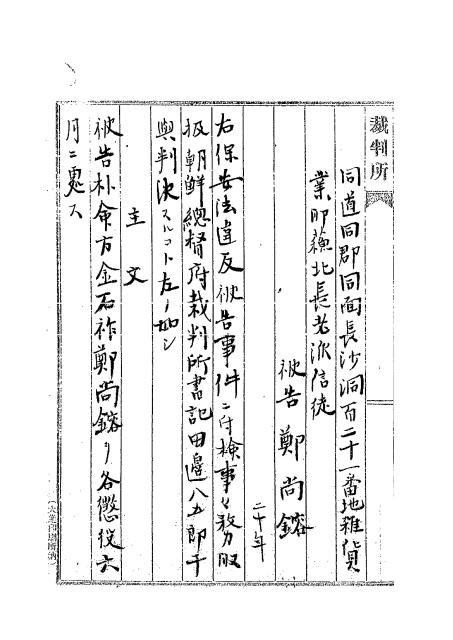 裁判所
同道同郡同面長沙洞百二十一番地雜貨
業耶蘓北長老派信徒
被告 鄭尚鎔
二十年
右保安法違反被告事件ニ付檢事々務取
扱朝鮮總督府裁判所書記田邊八五郎干
與判決スルコト左ノ如シ
主文
被告朴命方金石祚鄭尚鎔ヲ各懲役六
月ニ處ス